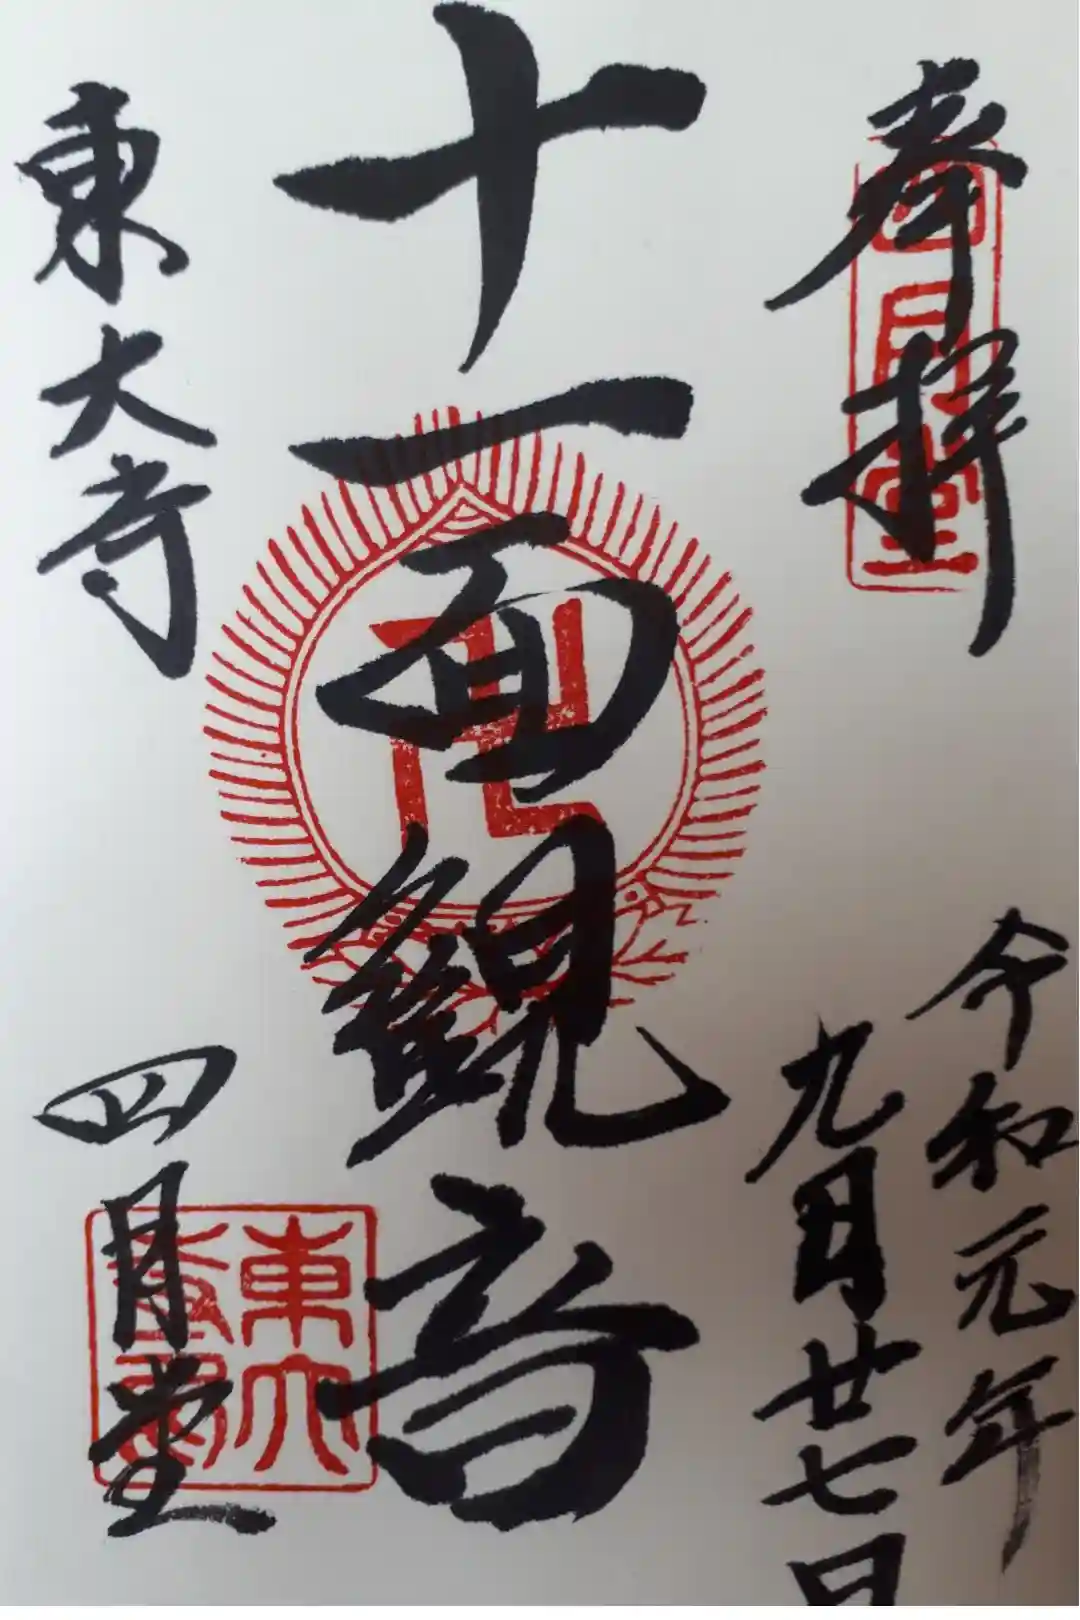 奉拝
四月堂
令和元年
九月廿七日
十一面観音
東大寺
四月堂